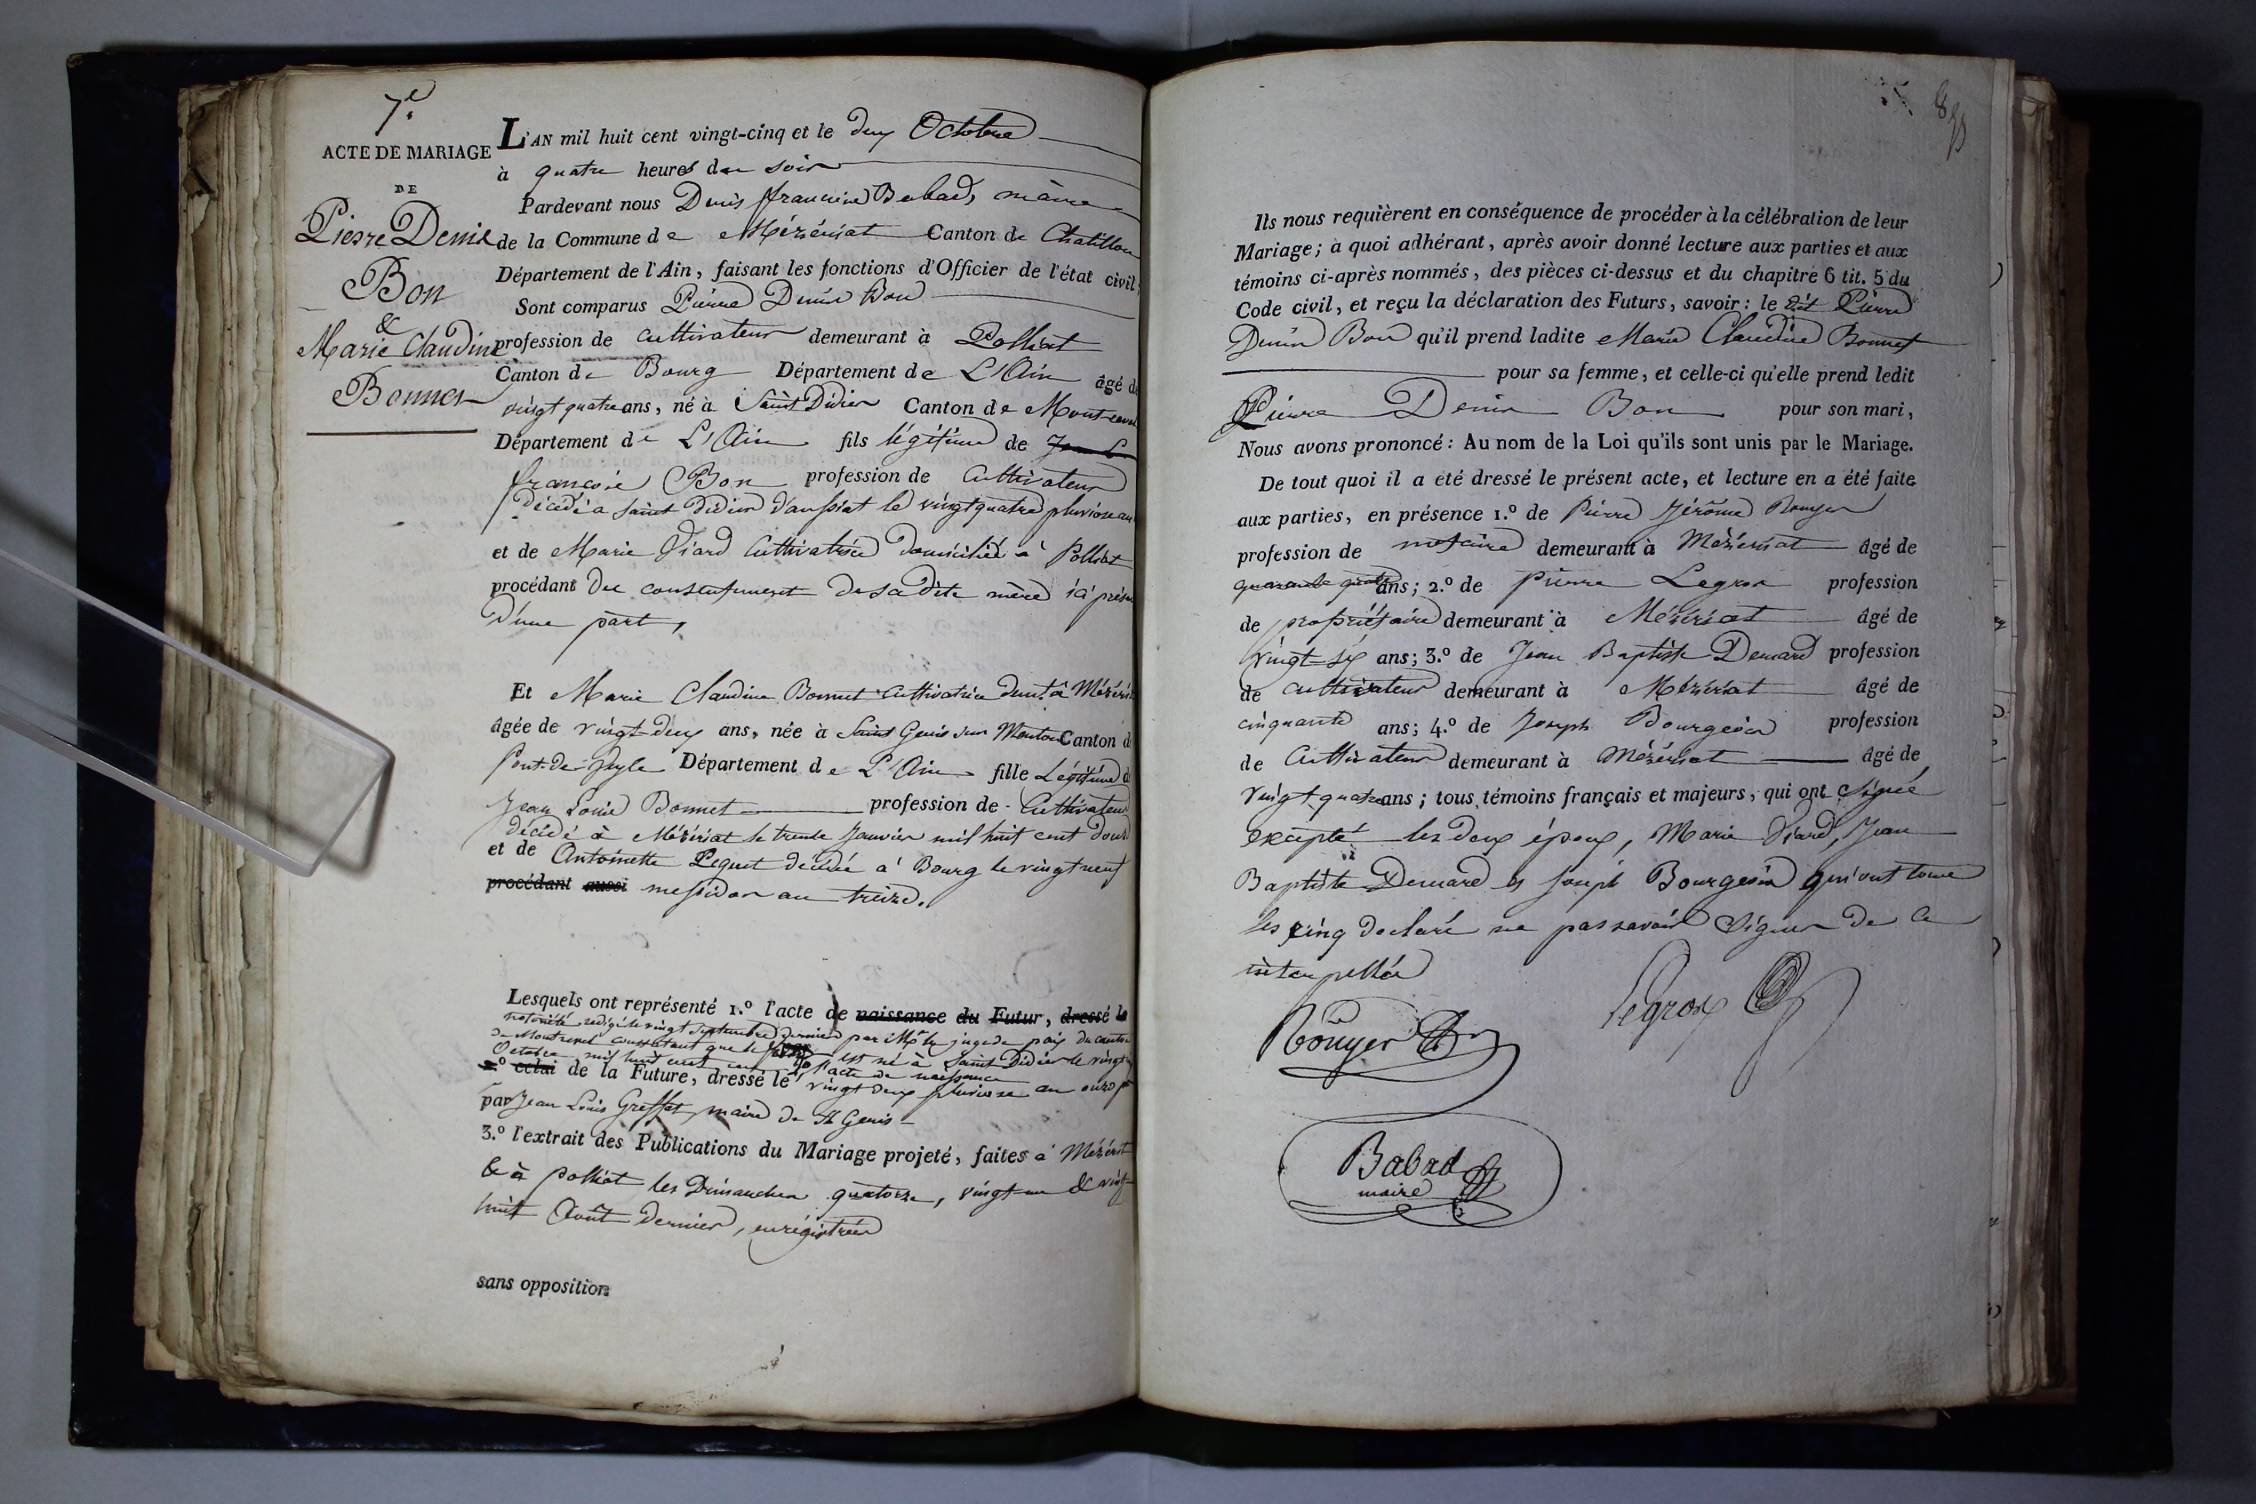 7.e
ACTE DE MARIAGE
DE
Pierre Denis
Bon
&
Marie Claudine
Bonnet
L'AN mil huit cent vingt-cinq et le deux Octobre
à quatre heures du soir
Pardevant nous Denis françois Babad, maire
de la Commune de Mézériat Canton de Chatillon
Département de l'Ain, faisant les fonctions d'Officier de l'état civil,
Sont comparus Pierre Denis Bon
profession de cultivateur demeurant à Polliat
Canton de Bourg Département de L'Ain âgé de
vingt quatre ans, né à Saint Didier Canton de Montrevel
Département de L'Ain fils légitime de
françois Bon profession de Cultivateur
décédé à Saint Didier d'aussiat le vingt quatre pluviose an
et de Marie Viard Cultivatrice domiciliée à Polliat
procédant du consentement de sa dite mère ici présente
d'une part,
Et Marie Claudine Bonnet cultivatrice demt. à Mézériat
âgée de vingt-deux ans, née à Saint Genis sur Menton Canton de
Pont-de-Veyle Département de L'Ain fille Légitime de
Jean Louis Bonnet profession de Cultivateur
décédé à Mézériat le trente Janvier mil huit cent douze
et de Antoinette Peguet décédée à Bourg le vingt neuf
procédant aussi messidor an treize.
Lesquels ont représenté 1.º l'acte de naissance du Futur, dressé le
notoriété rédigé le vingt septembre dernier par Mr le juge de paix du canton
de Montrevel constatant que le futur est né à Saint Didier le vingt
Octobre mil huit cent 2º l'acte de naissance
2.º celui de la Future, dressé le vingt deux pluviose an onze
par Jean Louis Greffet, maire de St Genis
3.º l'extrait des Publications du Mariage projeté, faites à Mézériat
& à Polliat les Dimanches quatorze, vingt un & vingt
huit Août dernier, enrégistrées
sans opposition
8
Ils nous requièrent en conséquence de procéder à la célébration de leur
Mariage; à quoi adhérant, après avoir donné lecture aux parties et aux
témoins ci-après nommés, des pièces ci-dessus et du chapitre 6 tit. 5 du
Code civil, et reçu la déclaration des Futurs, savoir: le dit Pierre
Denis Bon qu'il prend ladite Marie Claudine Bonnet
pour sa femme, et celle-ci qu'elle prend ledit
Pierre Denis Bon pour son mari,
Nous avons prononcé: Au nom de la Loi qu'ils sont unis par le Mariage.
De tout quoi il a été dressé le présent acte, et lecture en a été faite
aux parties, en présence 1.º de Pierre Jérôme Rouyer
profession de notaire demeurant à Mézériat âgé de
quarante quatre ans; 2.º de Pierre Legros profession
de propriétaire demeurant à Mézériat âgé de
vingt-six ans; 3.º de Jean Baptiste Demard profession
de cultivateur demeurant à Mézériat âgé de
cinquante ans; 4.º de Joseph Bourgeois profession
de Cultivateur demeurant à Mézériat âgé de
vingt quatre ans; tous témoins français et majeurs, qui ont signé
excepté les deux époux, Marie Viard, Jean
Baptiste Demard et Joseph Bourgeois qui ont tous
les cinq déclaré ne pas savoir signer de ce
interpellés
Rouyer
Legros
Babad
maire